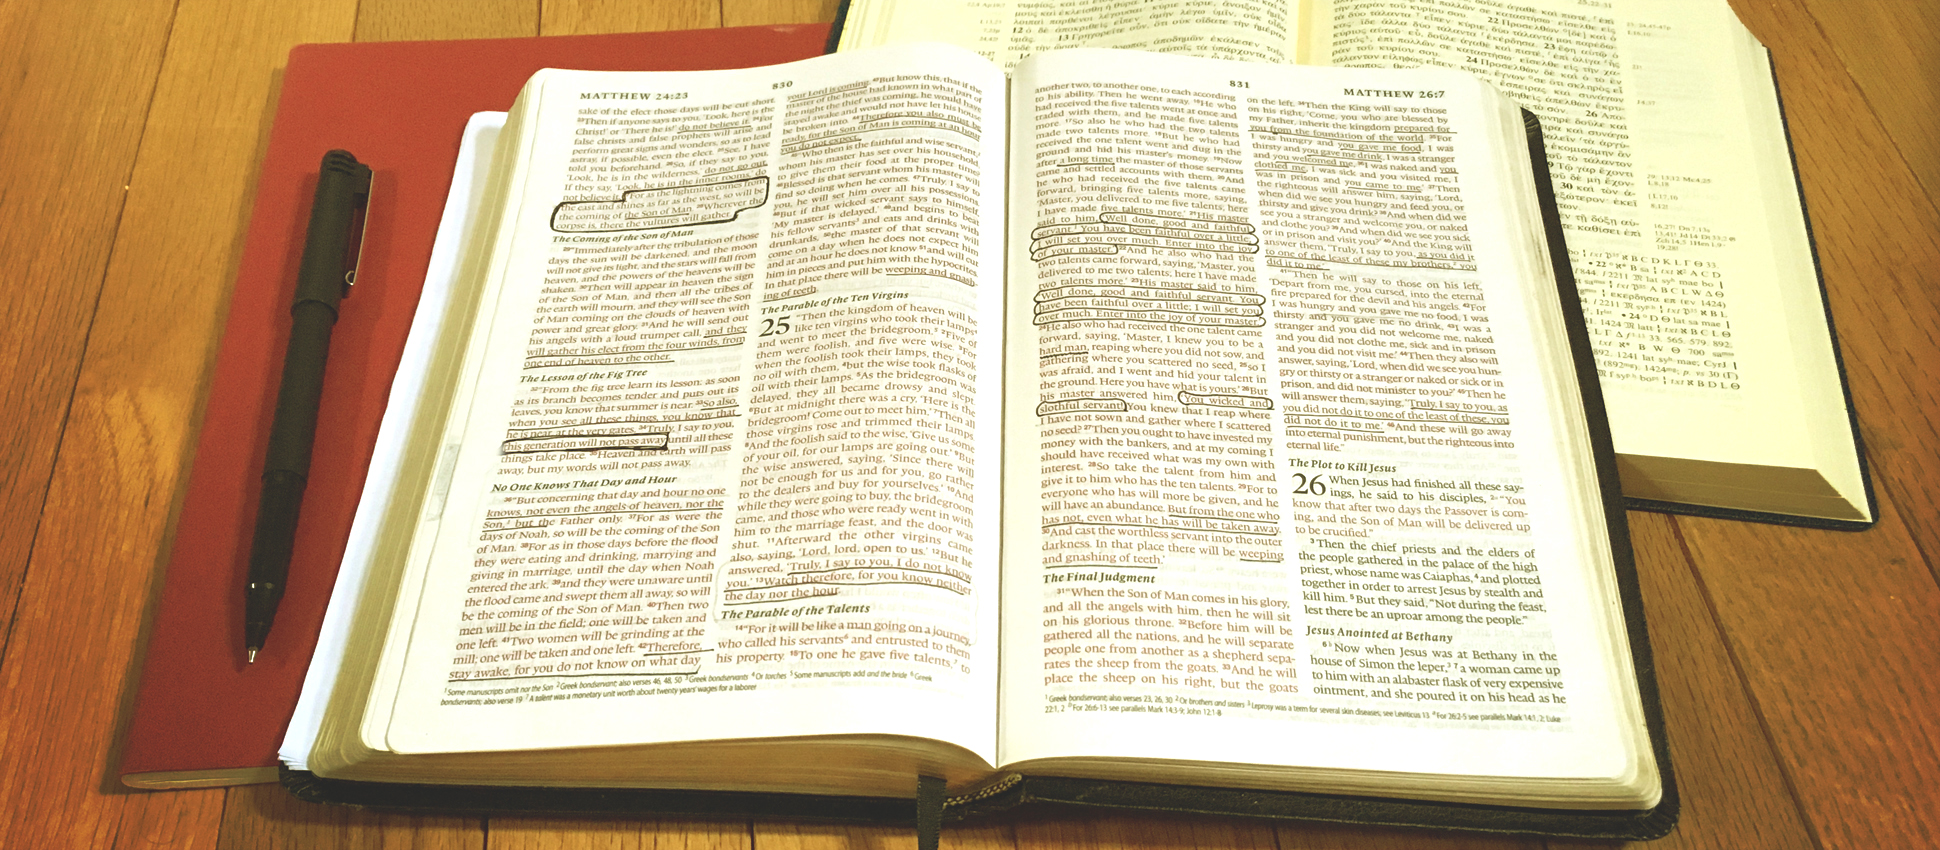 830
MATTHEW 24:23
sake of the elect those days will be cut short.
23Then if anyone says to you, 'Look, here is the
Christ!' or 'There he is!' do not believe it. 24For
false christs and false prophets will arise and
perform great signs and wonders, so as to lead
astray, if possible, even the elect. 25See, I have
told you beforehand. 26So, if they say to you,
'Look, he is in the wilderness,' do not go out.
If they say, 'Look, he is in the inner rooms,' do
not believe it. 27For as the lightning comes from
the east and shines as far as the west, so will be
the coming of the Son of Man. 28Wherever the
corpse is, there the vultures will gather.
The Coming of the Son of Man
29"Immediately after the tribulation of those
days the sun will be darkened, and the moon
will not give its light, and the stars will fall from
heaven, and the powers of the heavens will be
shaken. 30Then will appear in heaven the sign
of the Son of Man, and then all the tribes of
the earth will mourn, and they will see the Son
of Man coming on the clouds of heaven with
power and great glory. 31And he will send out
his angels with a loud trumpet call, and they
will gather his elect from the four winds, from
one end of heaven to the other.
The Lesson of the Fig Tree
32"From the fig tree learn its lesson: as soon
as its branch becomes tender and puts out its
leaves, you know that summer is near. 33So also,
when you see all these things, you know that
he is near, at the very gates. 34Truly, I say to you,
this generation will not pass away until all these
things take place. 35Heaven and earth will pass
away, but my words will not pass away.
No One Knows That Day and Hour
36"But concerning that day and hour no one
knows, not even the angels of heaven, nor the
Son,1 but the Father only. 37For as were the
days of Noah, so will be the coming of the Son
of Man. 38For as in those days before the flood
they were eating and drinking, marrying and
giving in marriage, until the day when Noah
entered the ark, 39and they were unaware until
the flood came and swept them all away, so will
be the coming of the Son of Man. 40Then two
men will be in the field; one will be taken and
one left. 41Two women will be grinding at the
mill; one will be taken and one left. 42Therefore,
stay awake, for you do not know on what day
your Lord is coming. 43But know this, that if the
master of the house had known in what part of
the night the thief was coming, he would have
stayed awake and would not have let his house
be broken into. 44Therefore you also must be
ready, for the Son of Man is coming at an hour
you do not expect.
45"Who then is the faithful and wise servant,2
whom his master has set over his household,
to give them their food at the proper time?
46Blessed is that servant whom his master will
find so doing when he comes. 47Truly, I say to
you, he will set him over all his possessions.
48But if that wicked servant says to himself,
'My master is delayed,' 49and begins to beat
his fellow servants3 and eats and drinks with
drunkards, 50the master of that servant will
come on a day when he does not expect him
and at an hour he does not know 51and will cut
him in pieces and put him with the hypocrites.
In that place there will be weeping and gnash-
ing of teeth.
The Parable of the Ten Virgins
25 "Then the kingdom of heaven will be
like ten virgins who took their lamps4
and went to meet the bridegroom.5 2Five of
them were foolish, and five were wise. 3For
when the foolish took their lamps, they took
no oil with them, 4but the wise took flasks of
oil with their lamps. 5As the bridegroom was
delayed, they all became drowsy and slept.
6But at midnight there was a cry, 'Here is the
bridegroom! Come out to meet him.' 7Then all
those virgins rose and trimmed their lamps.
8And the foolish said to the wise, 'Give us some
of your oil, for our lamps are going out.' 9But
the wise answered, saying, 'Since there will
not be enough for us and for you, go rather
to the dealers and buy for yourselves.' 10And
while they were going to buy, the bridegroom
came, and those who were ready went in with
him to the marriage feast, and the door was
shut. 11Afterward the other virgins came
also, saying, 'Lord, lord, open to us.' 12But he
answered, 'Truly, I say to you, I do not know
you.' 13Watch therefore, for you know neither
the day nor the hour.
The Parable of the Talents
14"For it will be like a man going on a journey,
who called his servants6 and entrusted to them
his property. 15To one he gave five talents,7 to
1Some manuscripts omit nor the Son 2Greek bondservant; also verses 46, 48, 50 3Greek bondservants 4Or torches 5Some manuscripts add and the bride 6Greek
bondservants; also verse 19 7A talent was a monetary unit worth about twenty years' wages for a laborer
831
MATTHEW 26:7
another two, to another one, to each according
to his ability. Then he went away. 16He who
had received the five talents went at once and
traded with them, and he made five talents
more. 17So also he who had the two talents
made two talents more. 18But he who had
received the one talent went and dug in the
ground and hid his master's money. 19Now
after a long time the master of those servants
came and settled accounts with them. 20And
he who had received the five talents came
forward, bringing five talents more, saying,
'Master, you delivered to me five talents; here
I have made five talents more.' 21His master
said to him, 'Well done, good and faithful
servant.1 You have been faithful over a little;
I will set you over much. Enter into the joy
of your master.' 22And he also who had the
two talents came forward, saying, 'Master, you
delivered to me two talents; here I have made
two talents more.' 23His master said to him,
'Well done, good and faithful servant. You
have been faithful over a little; I will set you
over much. Enter into the joy of your master.'
24He also who had received the one talent came
forward, saying, 'Master, I knew you to be a
hard man, reaping where you did not sow, and
gathering where you scattered no seed, 25so I
was afraid, and I went and hid your talent in
the ground. Here you have what is yours.' 26But
his master answered him, 'You wicked and
slothful servant! You knew that I reap where
I have not sown and gather where I scattered
no seed? 27Then you ought to have invested my
money with the bankers, and at my coming I
should have received what was my own with
interest. 28So take the talent from him and
give it to him who has the ten talents. 29For to
everyone who has will more be given, and he
will have an abundance. But from the one who
has not, even what he has will be taken away.
30And cast the worthless servant into the outer
darkness. In that place there will be weeping
and gnashing of teeth.'
The Final Judgment
31"When the Son of Man comes in his glory,
and all the angels with him, then he will sit
on his glorious throne. 32Before him will be
gathered all the nations, and he will separate
people one from another as a shepherd sepa-
rates the sheep from the goats. 33And he will
place the sheep on his right, but the goats
on the left. 34Then the King will say to those
on his right, 'Come, you who are blessed by
my Father, inherit the kingdom prepared for
you from the foundation of the world. 35For
I was hungry and you gave me food, I was
thirsty and you gave me drink, I was a stranger
and you welcomed me, 36I was naked and you
clothed me, I was sick and you visited me, I
was in prison and you came to me.' 37Then
the righteous will answer him, saying, 'Lord,
when did we see you hungry and feed you, or
thirsty and give you drink? 38And when did we
see you a stranger and welcome you, or naked
and clothe you? 39And when did we see you sick
or in prison and visit you?' 40And the King will
answer them, 'Truly, I say to you, as you did it
to one of the least of these my brothers,2 you
did it to me.'
41"Then he will say to those on his left,
'Depart from me, you cursed, into the eternal
fire prepared for the devil and his angels. 42For
I was hungry and you gave me no food, I was
thirsty and you gave me no drink, 43I was a
stranger and you did not welcome me, naked
and you did not clothe me, sick and in prison
and you did not visit me.' 44Then they also will
answer, saying, 'Lord, when did we see you hun-
gry or thirsty or a stranger or naked or sick or in
prison, and did not minister to you?' 45Then he
will answer them, saying, 'Truly, I say to you, as
you did not do it to one of the least of these, you
did not do it to me.' 46And these will go away
into eternal punishment, but the righteous into
eternal life."
The Plot to Kill Jesus
26 When Jesus had finished all these say-
ings, he said to his disciples, 2"You
know that after two days the Passover is com-
ing, and the Son of Man will be delivered up
to be crucified."
3Then the chief priests and the elders of
the people gathered in the palace of the high
priest, whose name was Caiaphas, 4and plotted
together in order to arrest Jesus by stealth and
kill him. 5But they said, "Not during the feast,
lest there be an uproar among the people."
Jesus Anointed at Bethany
6Now when Jesus was at Bethany in the
house of Simon the leper,3 7a woman came up
to him with an alabaster flask of very expensive
ointment, and she poured it on his head as he
1Greek bondservant; also verses 23, 26, 30 2Or brothers and sisters 3Leprosy was a term for several skin diseases; see Leviticus 13 4For 26:2-5 see parallels Mark 14:1, 2; Luke
22:1, 2 6For 26:6-13 see parallels Mark 14:3-9; John 12:1-8